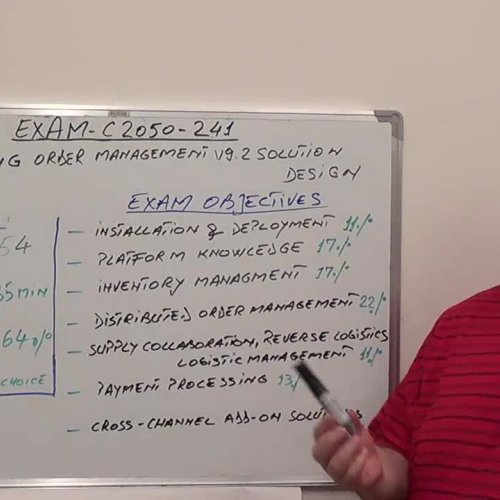 EXAM-C2050-241
NG ORDER MANAGEMENT V9.2 SOLUTION
DESIGN
EXAM OBJECTIVES
54
35 MIN
64%
CHOICE
- INSTALLATION & DEPLOYMENT 11%
- PLATFORM KNOWLEDGE 17%
- INVENTORY MANAGMENT 17%
- DISTRIBUTED ORDER MANAGEMENT 22%
- SUPPLY COLLABORATION, REVERSE LOGISTICS
LOGISTIC MANAGEMENT 11%
- PAYMENT PROCESSING 13%
- CROSS-CHANNEL ADD-ON